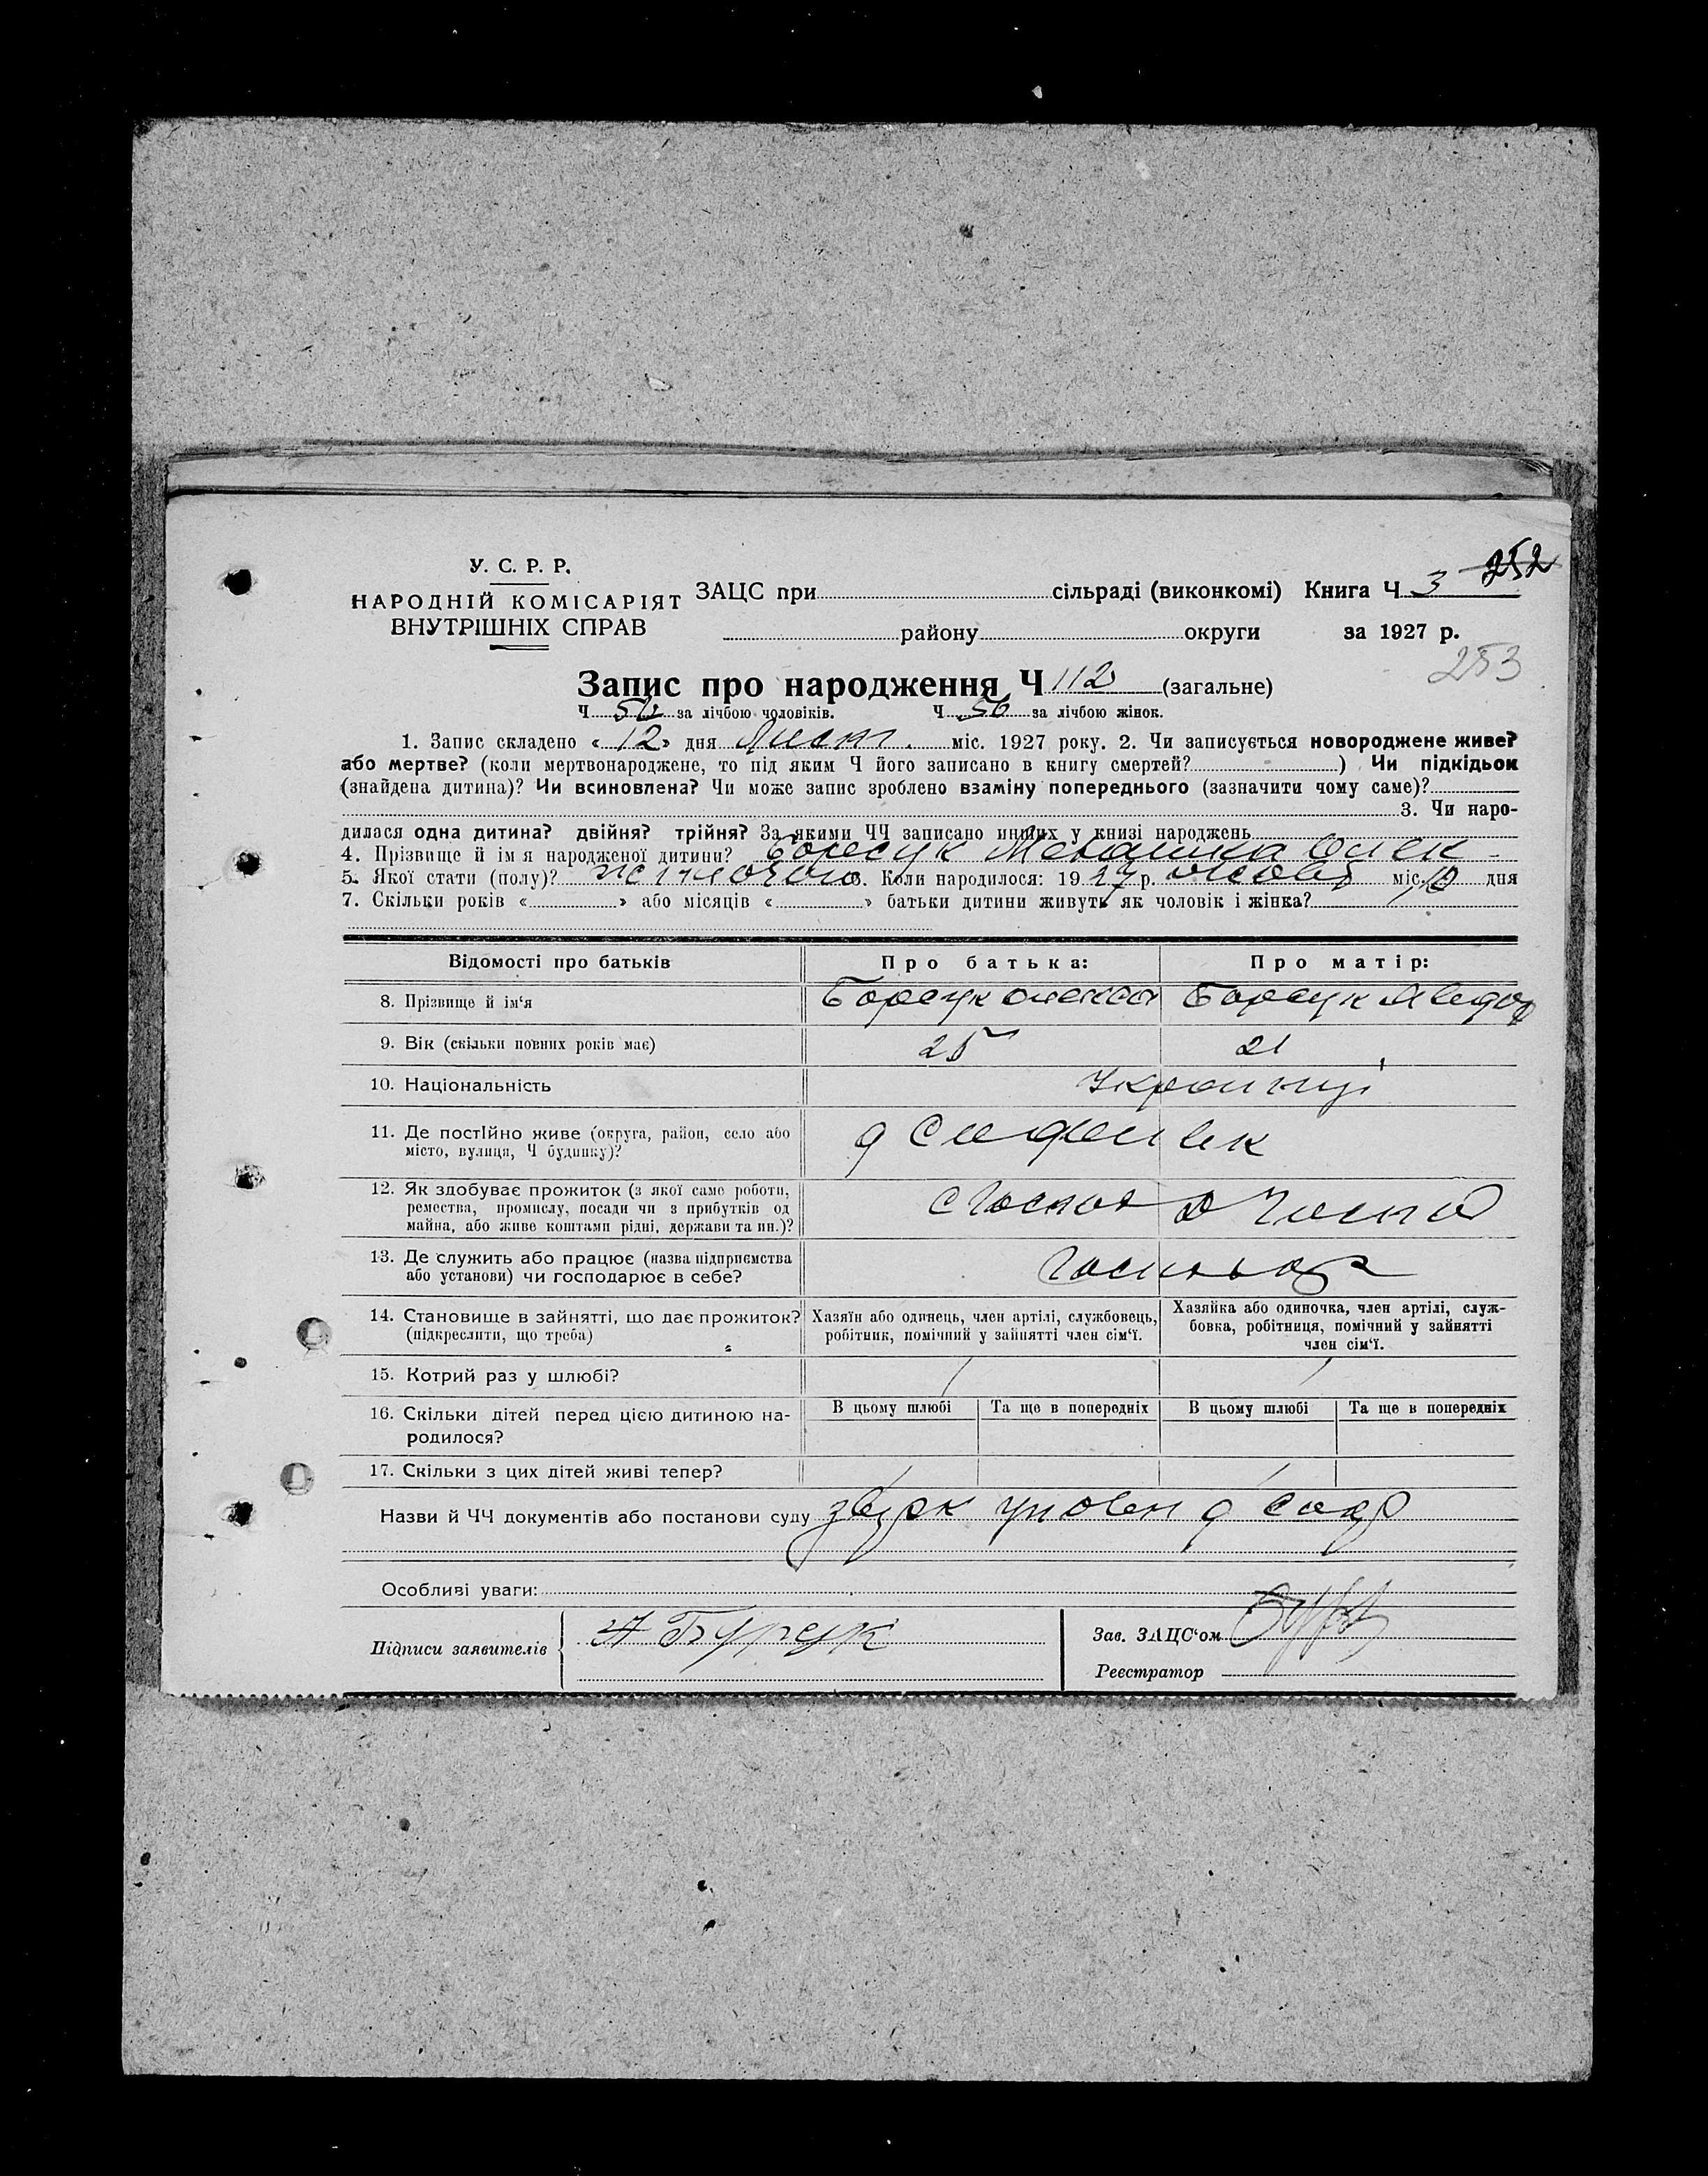 252
У. С. Р. Р.
НАРОДНІЙ КОМІСАРІЯТ
ВНУТРІШНІХ СПРАВ
ЗАЦС при сільраді (виконкомі) Книга Ч 3
району округи за 1927 р.
253
Запис про народження Ч 112 (загальне)
Ч за лічбою чоловіків. Ч 56 за лічбою жінок.
1. Запис складено « 12 » дня міс. 1927 року. 2. Чи записується новороджене живе?
або мертве? (коли мертвонароджене, то під яким Ч його записано в книгу смертей? ) Чи підкідьок
(знайдена дитина)? Чи всиновлена? Чи може запис зроблено взаміну попереднього (зазначити чому саме)?
3. Чи наро-
дилася одна дитина? двійня? трійня? За якими ЧЧ записано инших у книзі народжень
4. Прізвище й ім я народженої дитини? Борсук Олек
5. Якої стати (полу)? 6. Коли народилося: 19 27 р. міс. 10 дня
7. Скільки років « » або місяців « » батьки дитини живуть як чоловік і жінка?
Відомості про батьків Про батька: Про матір:
8. Прізвище й ім'я Борсук Олекса Борсук
9. Вік (скільки повних років має) 25 21
10. Національність Українці
11. Де постійно живе (округа, район, село або
місто, вулиця, Ч будинку)?
12. Як здобуває прожиток (з якої саме роботи,
ремества, промислу, посади чи з прибутків од
майна, або живе коштами рідні, держави та ин.)?
13. Де служить або працює (назва підприємства
або установи) чи господарює в себе?
14. Становище в зайнятті, що дає прожиток?
(підкреслити, що треба)
Хазяїн або одинець, член артілі, службовець,
робітник, помічний у зайнятті член сім'ї.
Хазяйка або одиночка, член артілі, служ-
бовка, робітниця, помічний у зайнятті
член сім'ї.
15. Котрий раз у шлюбі?
16. Скільки дітей перед цією дитиною на-
родилося?
В цьому шлюбі Та ще в попередніх В цьому шлюбі Та ще в попередніх
17. Скільки з цих дітей живі тепер?
Назви й ЧЧ документів або постанови суду
Особливі уваги:
Підписи заявителів
Зав. ЗАЦС'ом
Реєстратор